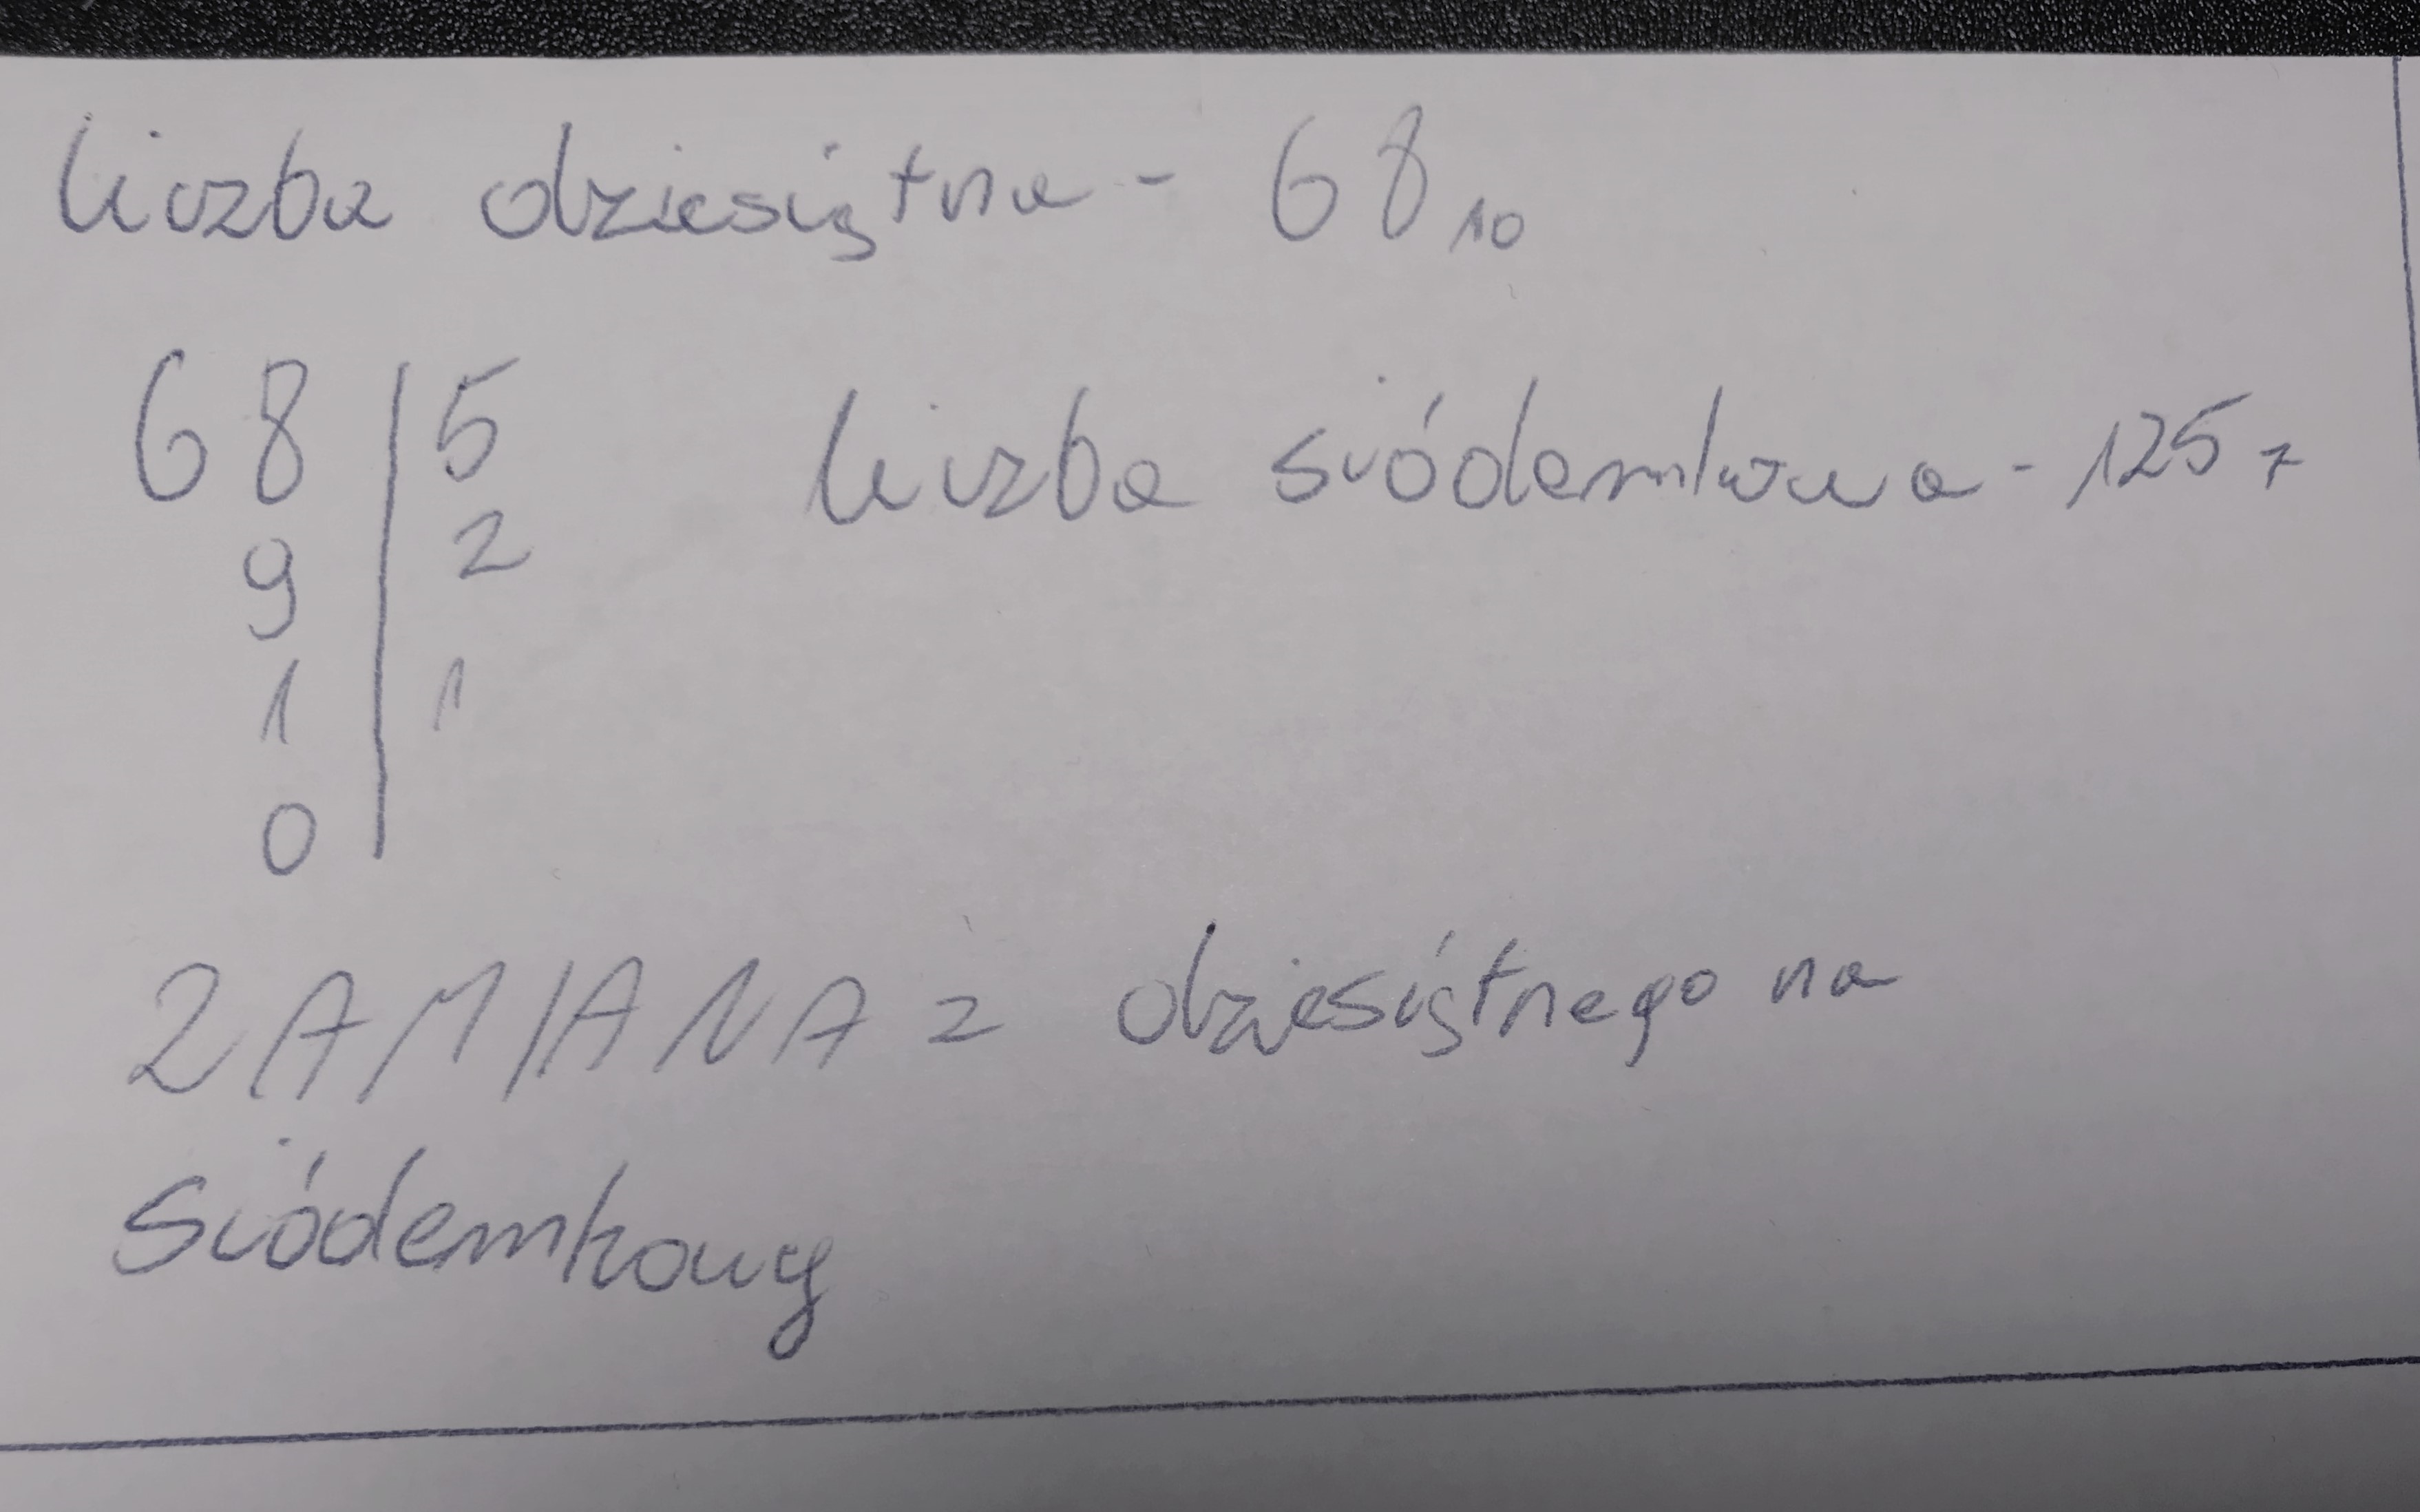 liczba dziesiętna - 68₁₀
68 | 5
9 | 2
1 | 1
0 |
liczba siódemkowa - 125₇
ZAMIANA z dziesiętnego na
siódemkowy